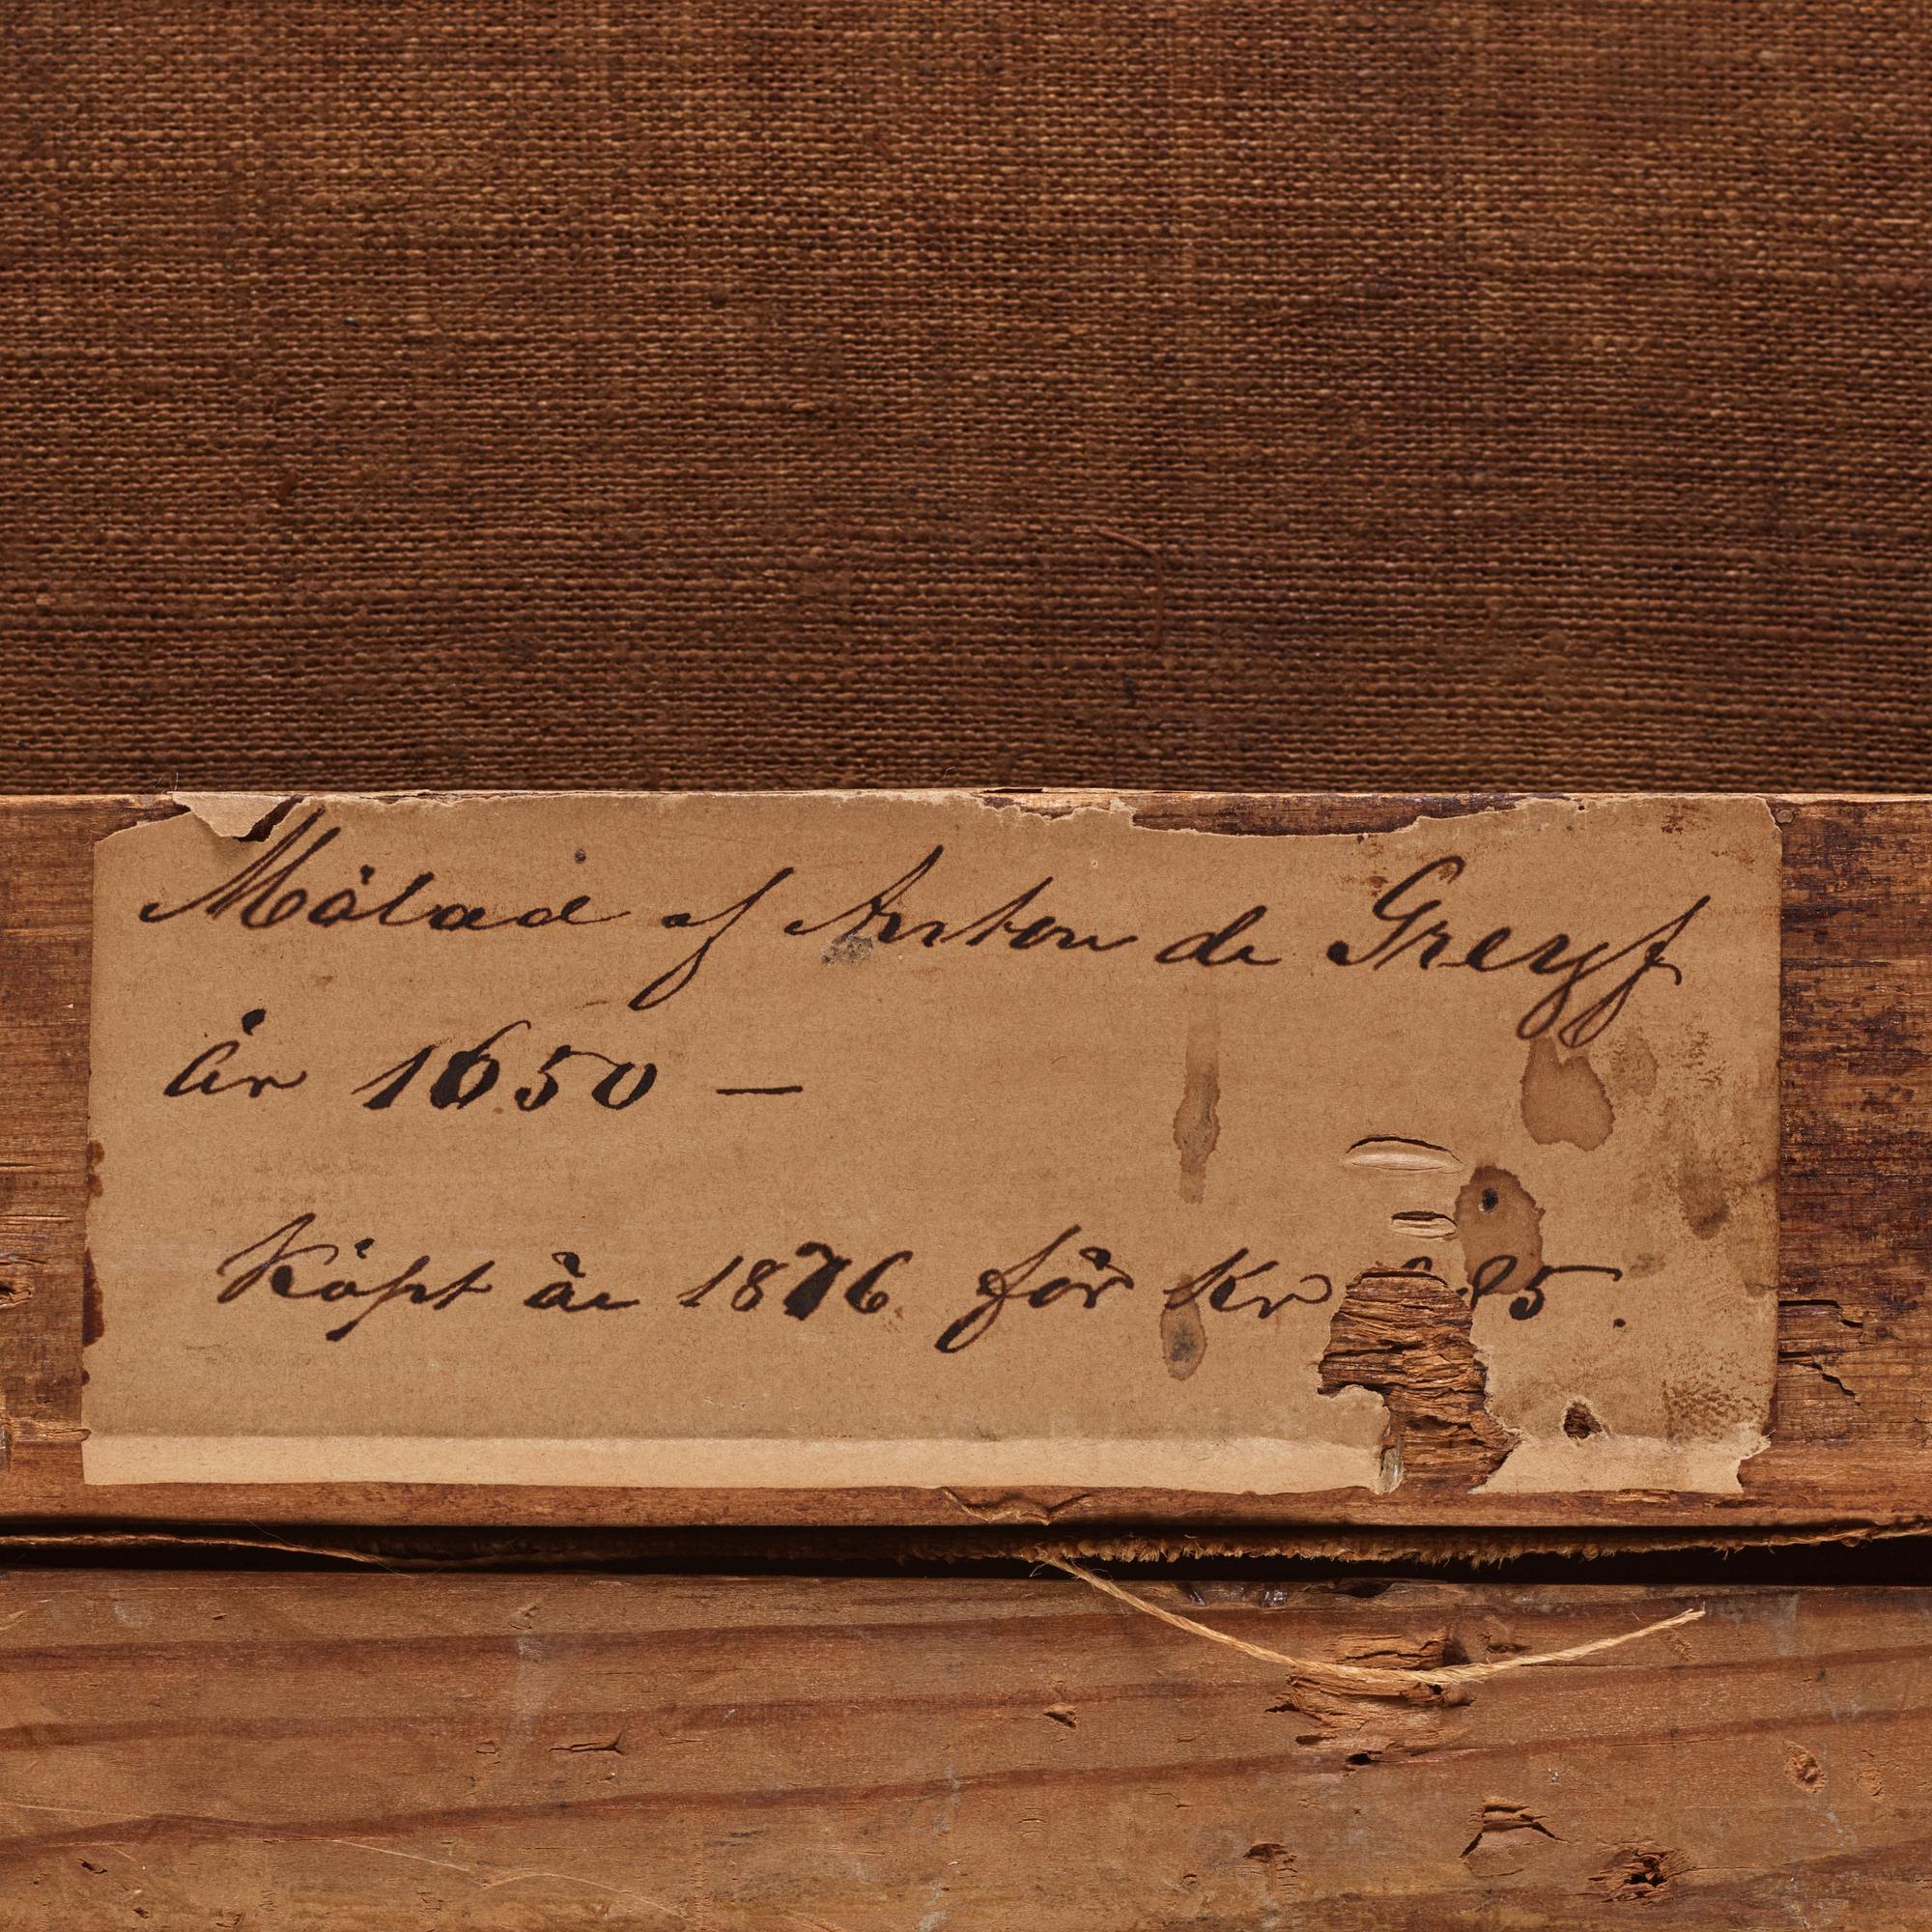 Målad af Anton de Greyf
år 1650 —
Köpt år 1876 för Kr